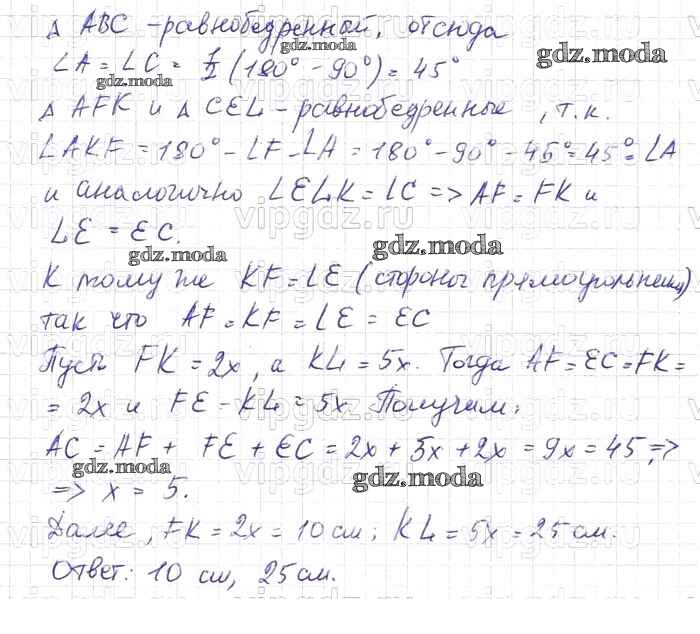 Δ ABC - равнобедренный, отсюда
∠A = ∠C = 1/2 (180° - 90°) = 45°
Δ AFK и Δ CEL - равнобедренные, т.к.
∠AKF = 180° - ∠F - ∠A = 180° - 90° - 45° = 45° = ∠A
и аналогично ∠ELK = ∠C => AF = FK и
LE = EC.
К тому же KF = LE (стороны прямоугольника)
так что AF = KF = LE = EC
Пусть FK = 2x, а KL = 5x. Тогда AF = EC = FK =
= 2x и FE - KL = 5x. Получим:
AC = AF + FE + EC = 2x + 5x + 2x = 9x = 45 =>
=> x = 5.
Далее, FK = 2x = 10 см; KL = 5x = 25 см.
Ответ: 10 см, 25 см.
gdz.moda
gdz.moda
gdz.moda
gdz.moda
gdz.moda
gdz.moda
gdz.moda
vipgdz.ru